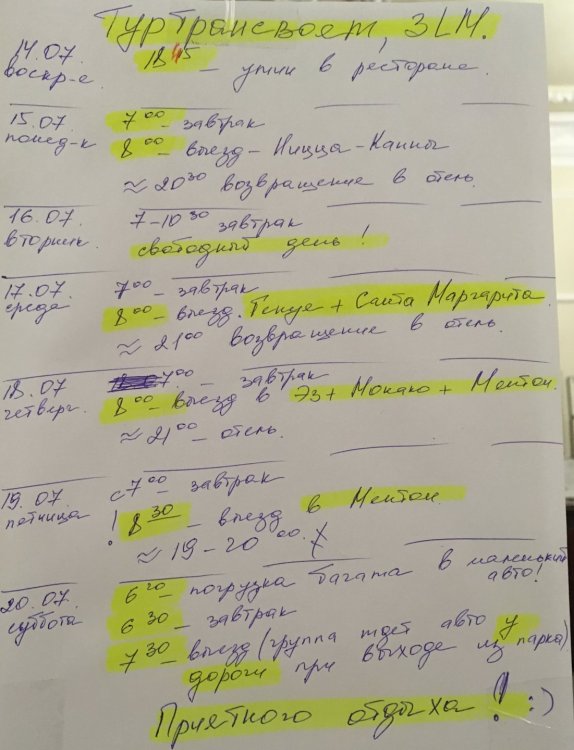 ТурТрансвоят, 3LM.
14.07 18 45 – ужин в ресторане.
воскр-е.
15.07 7 00 – завтрак
понед-к 8 00 – выезд – Ницца – Канны
≈ 20 30 возвращение в отель.
16.07 7–10 30 завтрак
вторник. свободный день!
17.07 7 00 – завтрак
среда 8 00 – выезд. Генуе + Санта Маргарита.
≈ 21 00 возвращение в отель.
18.07 7 00 – завтрак
четверг. 8 00 – выезд в Эз + Монако + Ментон.
≈ 21 00 – отель.
19.07 с 7 00 – завтрак
пятница ! 8 30 – выезд в Ментон.
≈ 19 – 20 00.
20.07. 6 20 – погрузка багажа в маленький авто!
суббота 6 30 – завтрак
7 30 – выезд (группа ждет авто у
дороги при выходе из парка)
Приятного отдыха! :)